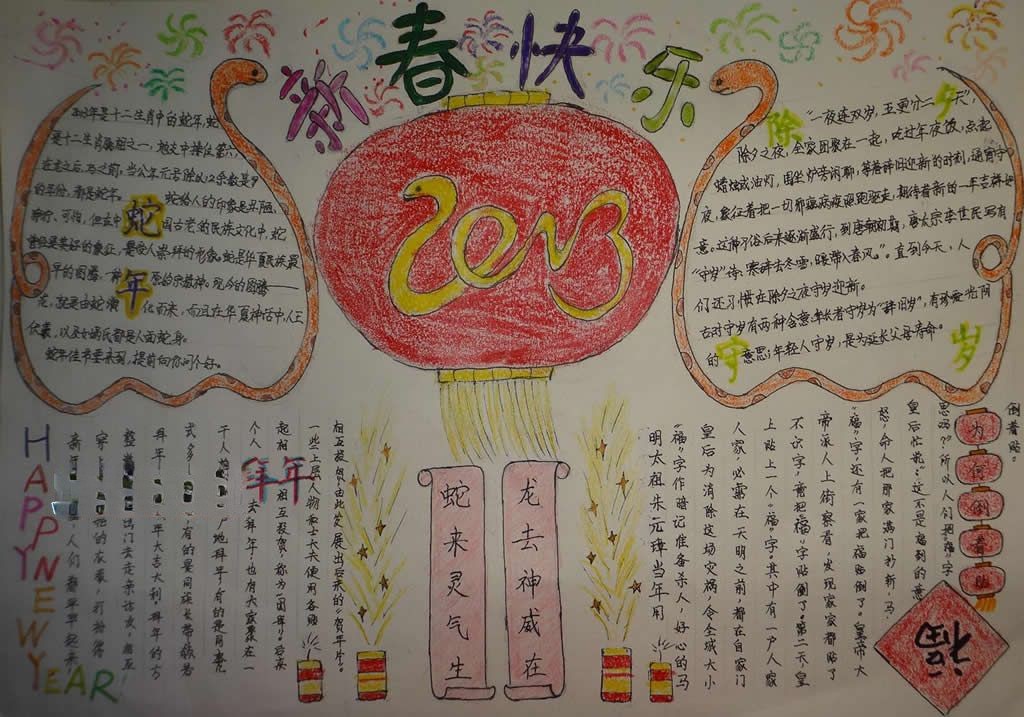 新春快乐
2013年是十二生肖中的蛇年,蛇
是十二生肖属相之一,地支中排位第六,
在龙之后,马之前,当公年元号除以12余数是9
的年份,都是蛇年。 蛇给人的印象是丑陋、
狰狞、可怕,但在中国古老的民族文化中,蛇
曾经是美好的象征,是受人崇拜的形象。蛇是华夏民族最
早的图腾,一种原始宗教神。现今的图腾——
龙,就是由蛇演化而来,而且在华夏神话中人王
伏羲,以至女娲氏都是人面蛇身。
蛇年佳节要来到,提前向你问个好。
蛇年
2013
除夕
“一夜连双岁,五更分二天”,
除夕之夜,全家团聚在一起,吃过年夜饭,点起
蜡烛或油灯,围坐炉旁闲聊,等着辞旧迎新的时刻,通宵守
夜,象征着把一切邪瘟病疫照跑驱走,期待着新的一年吉祥如
意。这种习俗后来逐渐盛行,到唐朝初期,唐太宗李世民写有
“守岁”诗:寒辞去冬雪,暖带入春风”。直到今天,人
们还习惯在除夕之夜守岁迎新。
古时守岁有两种含意:年长者守岁为“辞旧岁”,有珍爱光阴
的意思;年轻人守岁,是为延长父母寿命。
守岁
HAPPY NEW YEAR
拜年
新
人们都早早起来
穿
的衣裳,打扮得
整
出门去走亲访友,相互
拜年
年大吉大利。拜年的方
式多
有的是同族长带领若
干人
地拜年;有的是同事
个人
去拜年;也有大家聚在一
起相
相互祝贺,称为“团拜”。后来
一些上层人物和士大夫使用各贴
相互投贺,由此发展出后来的“贺年片”。
龙去神威在
蛇来灵气生
明太祖朱元璋当年用
“福”字作暗记准备杀人,好心的马
皇后为消除这场灾祸,令全城大小
人家,必需在天明之前都在自家门
上贴上一个“福”字。其中有一户人家
不识字,竟把“福”字贴倒了。第二天,皇
帝派人上街察看,发现家家都贴了
“福”字,还有一家把福贴倒了。皇帝大
怒,命人把那家满门抄斩,马
皇后忙说:“这不是福到的意
思吗?”所以人们把“福”字
倒着贴。
为何倒着贴
福